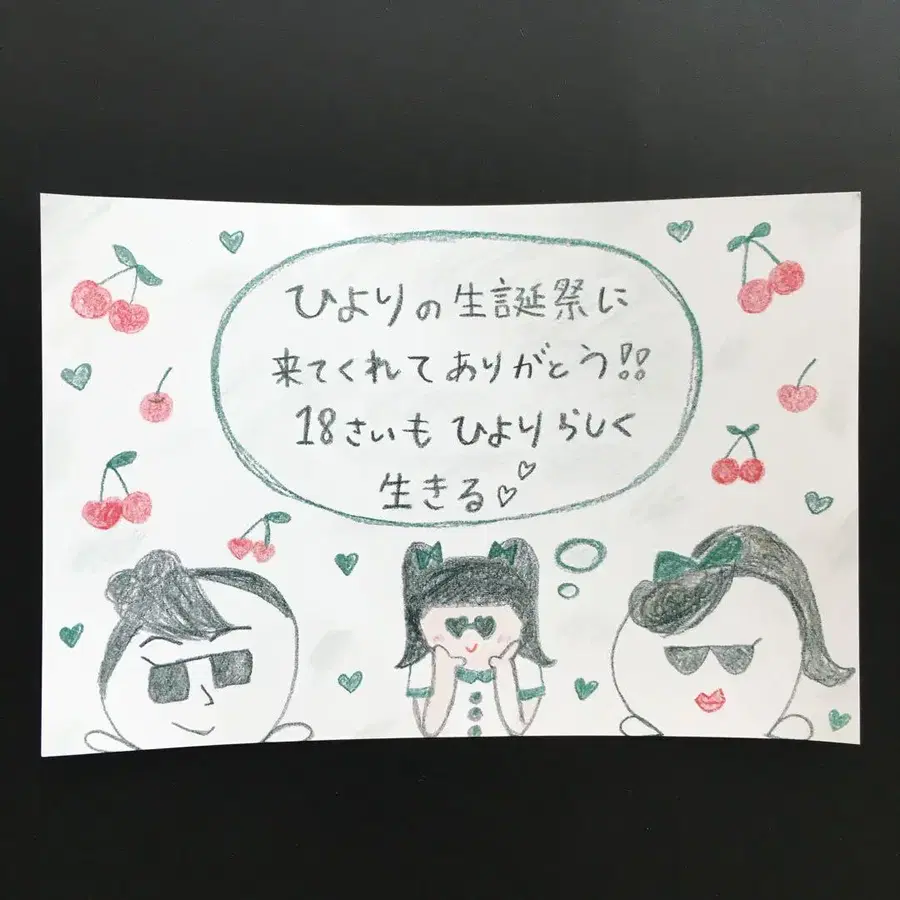 ひよりの生誕祭に
来てくれてありがとう!!
18さいもひよりらしく
生きる♡♡